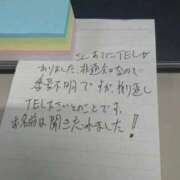 さん あてにTELが
ありました。非通知なので
番号不明ですが、折り返し
TEL下さいとのことです。
お名前は聞きとれました!